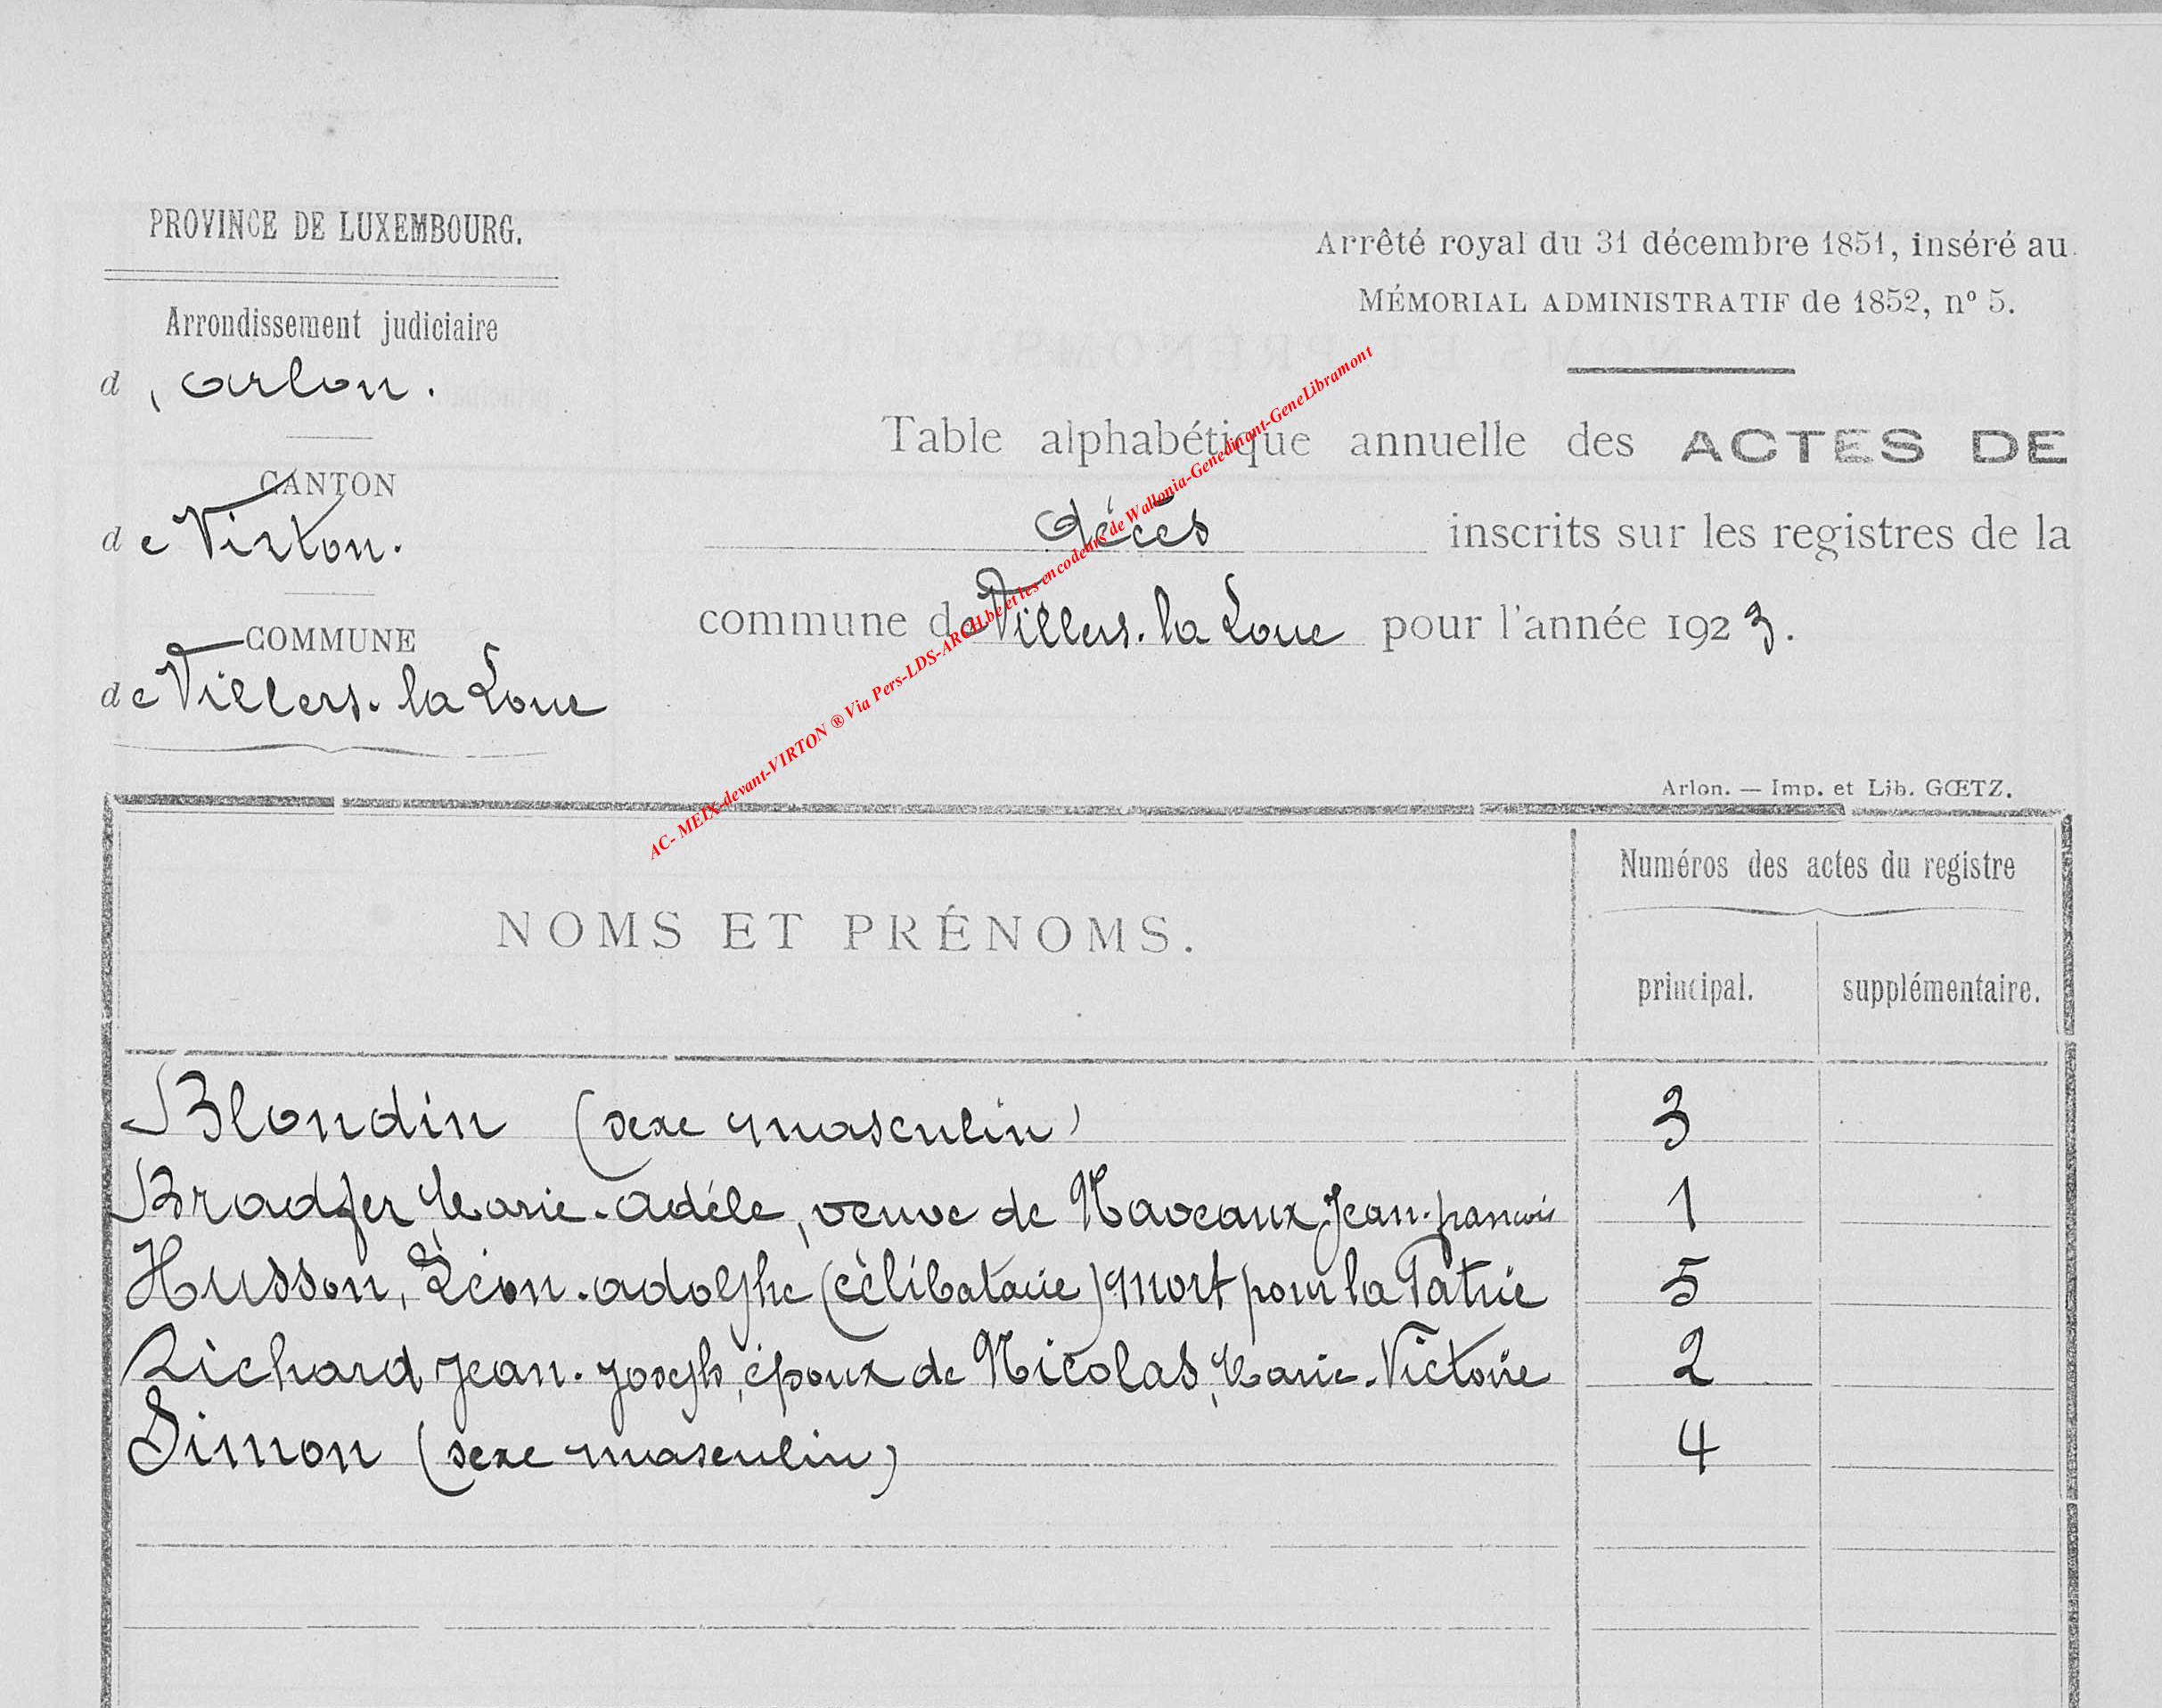 PROVINCE DE LUXEMBOURG.
Arrondissement judiciaire
d'arlon.
CANTON
de Virton.
COMMUNE
de Villers-la Loue
Arrêté royal du 31 décembre 1851, inséré au
MÉMORIAL ADMINISTRATIF de 1852, nº 5.
Table alphabétique annuelle des ACTES DE
décès inscrits sur les registres de la
commune de Villers-la Loue pour l'année 1923.
AC- MEIX-devant-VIRTON ® Via Pers-LDS-ARCH.be et les encodeurs de Wallonia-Genedinant-GeneLibramont
Arlon. — Imp. et Lib. GŒTZ.
NOMS ET PRÉNOMS.
Numéros des actes du registre
principal. supplémentaire.
Blondin (sexe masculin) 3
Bradfer Marie-Adèle, veuve de Naveaux Jean-françois 1
Husson, Léon-adolphe (célibataire) Mort pour la Patrie 5
Richard Jean-Joseph, époux de Nicolas, Marie-Victoire 2
Simon (sexe masculin) 4